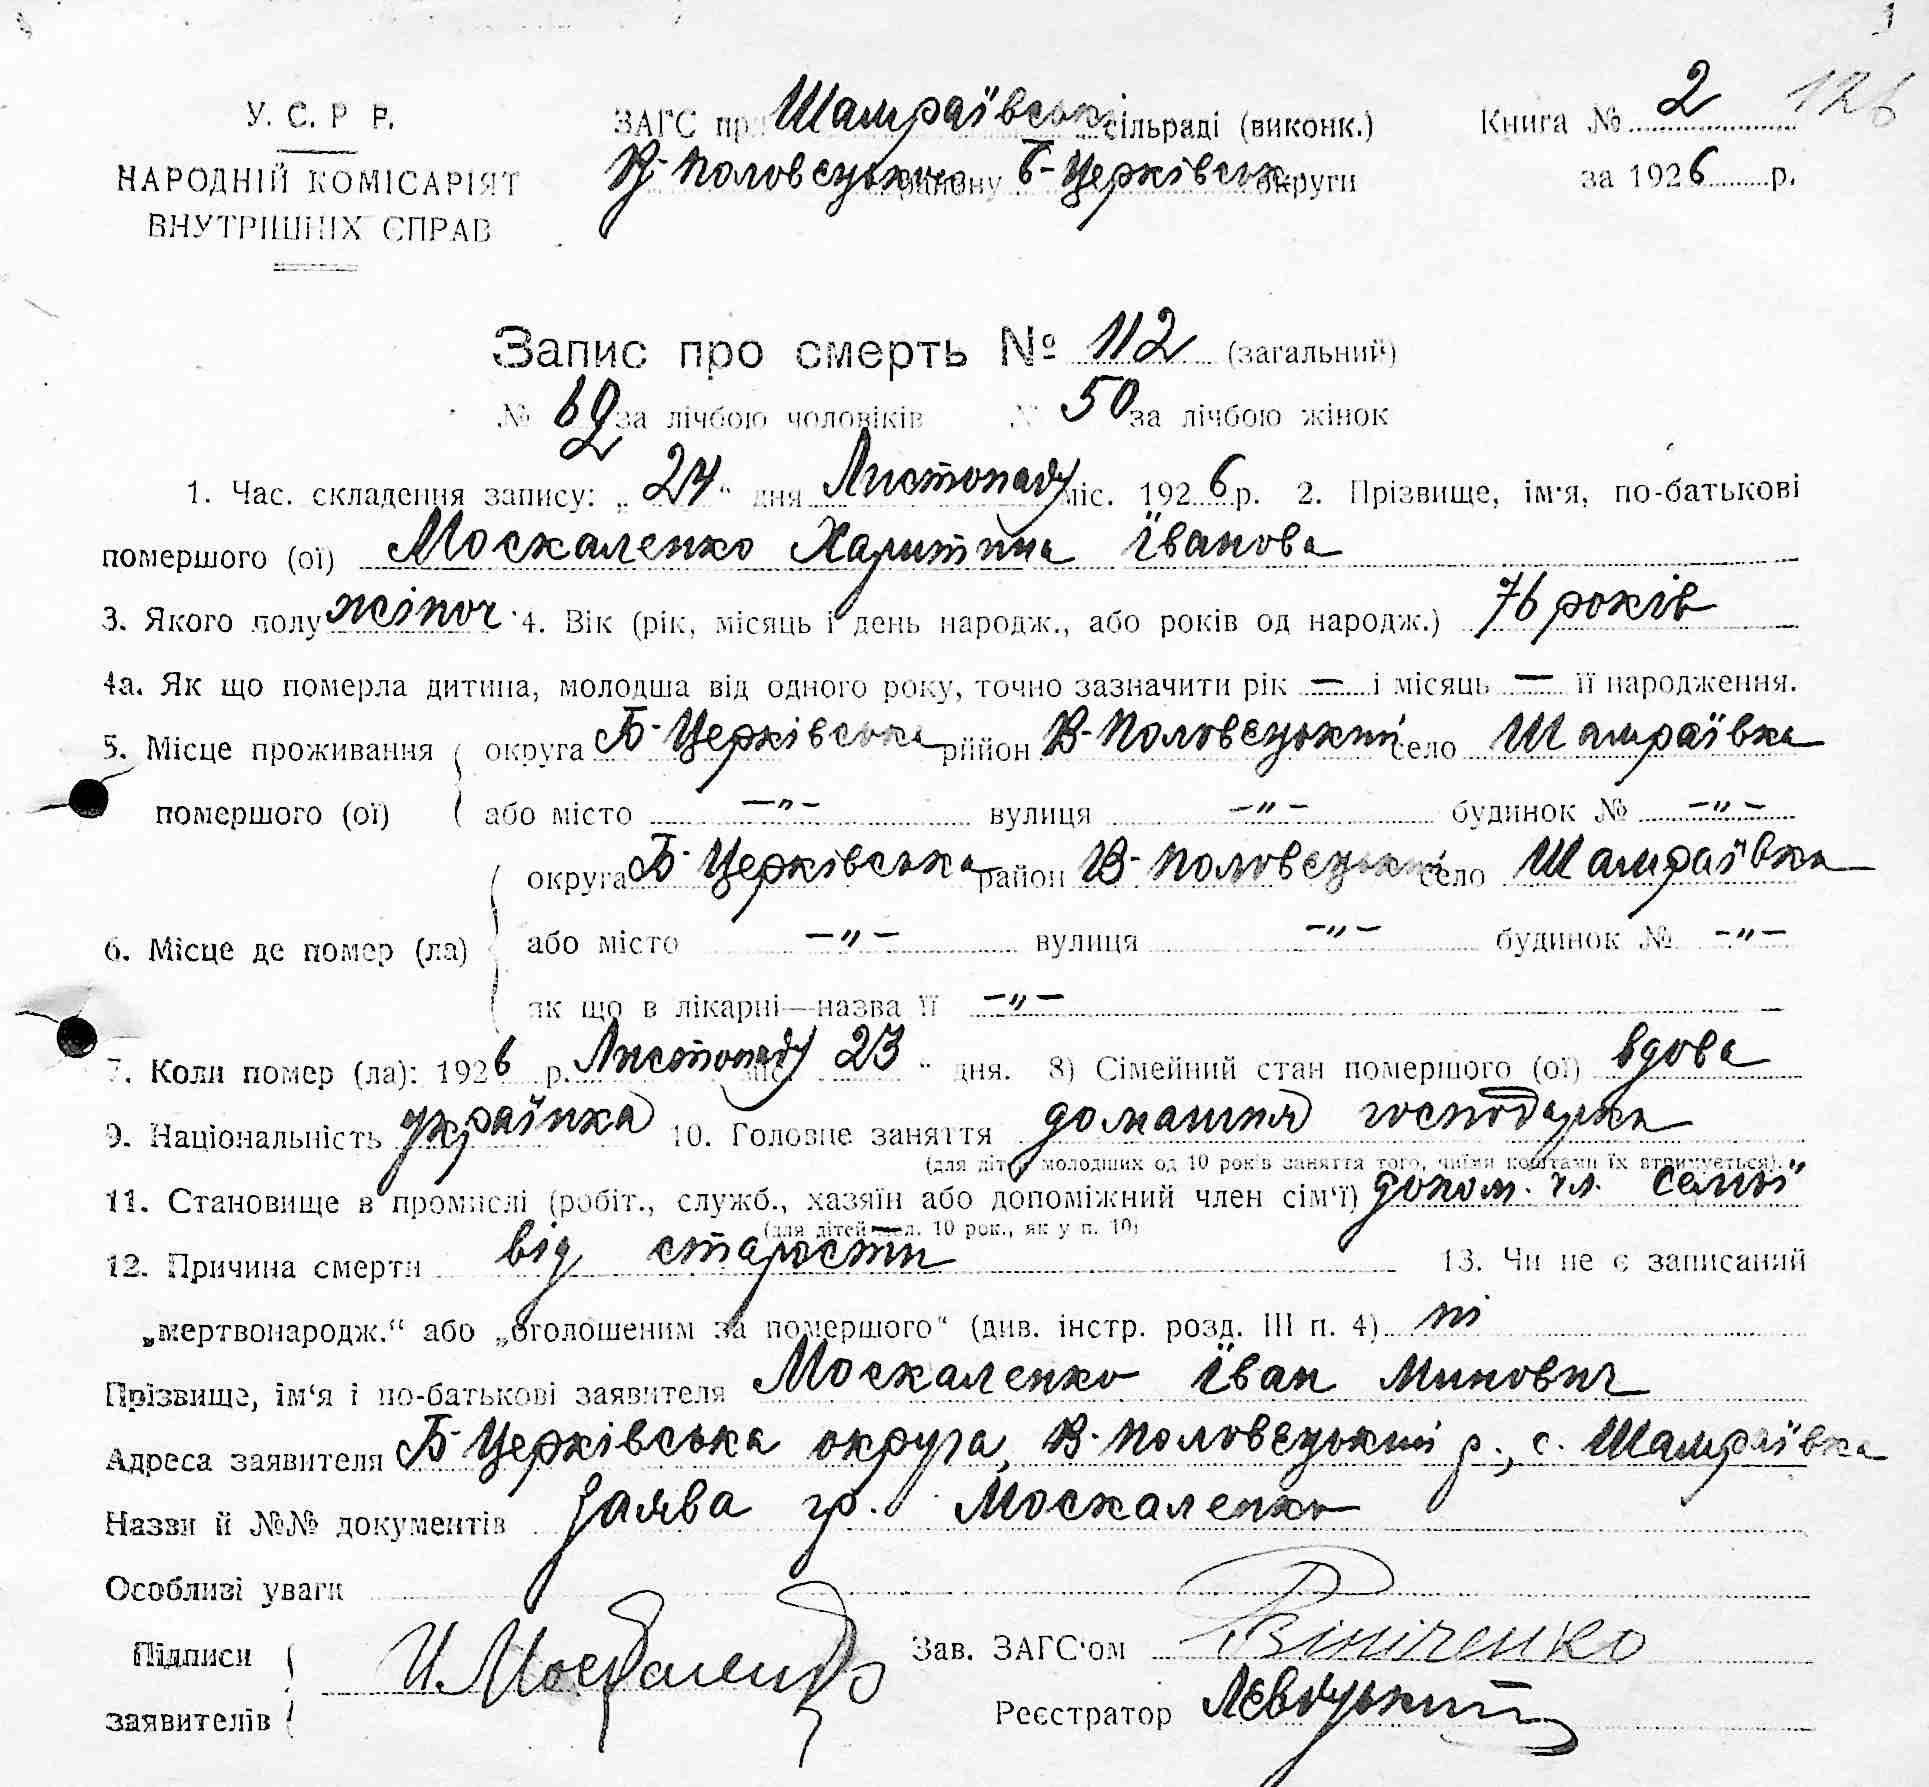 1
У. С. Р Р.
НАРОДНІЙ КОМІСАРІЯТ
ВНУТРІШНІХ СПРАВ
ЗАГС при Шамраївськ. сільраді (виконк.)
В-Половецького району Б-Церківськ. округи
Книга № 2 126
за 1926 р.
Запис про смерть № 112 (загальний)
№ 62 за лічбою чоловіків № 50 за лічбою жінок
1. Час. складення запису: „ 24 “ дня Листопаду міс. 1926 р. 2. Прізвище, ім'я, по-батькові
помершого (ої) Москаленко Харитина Іванова
3. Якого полу жіноч 4. Вік (рік, місяць і день народж., або років од народж.) 76 років
4а. Як що померла дитина, молодша від одного року, точно зазначити рік — і місяць — її народження.
5. Місце проживання округа Б-Церківська рйион В-Половецький село Шамраївка
помершого (ої) або місто –„– вулиця –„– будинок № –„–
округа Б-Церківська район В-Половецький село Шамраївка
6. Місце де помер (ла) або місто –„– вулиця –„– будинок № –„–
як що в лікарні—назва її –„–
7. Коли помер (ла): 1926 р. Листопаду міс. 23 “ дня. 8) Сімейний стан помершого (ої) вдова
9. Національність українка 10. Головне заняття домашня господарка
(для дітей молодших од 10 років заняття того, чиїми коштами їх втримується).
11. Становище в промислі (робіт., служб., хазяїн або допоміжний член сім'ї) допом. чл. семьї
(для дітей мол. 10 рок., як у п. 10)
12. Причина смерти від старости 13. Чи не є записаний
„мертвонародж.“ або „оголошеним за помершого“ (див. інстр. розд. III п. 4) ні
Прізвище, ім'я і по-батькові заявителя Москаленко Іван Минович
Адреса заявителя Б-Церківська округа, В-Половецький р., с. Шамраївка
Назви й №№ документів Заява гр. Москаленко
Особливі уваги
Підписи
заявителів И. Москаленко
Зав. ЗАГС'ом Вініченко
Реєстратор Левицький